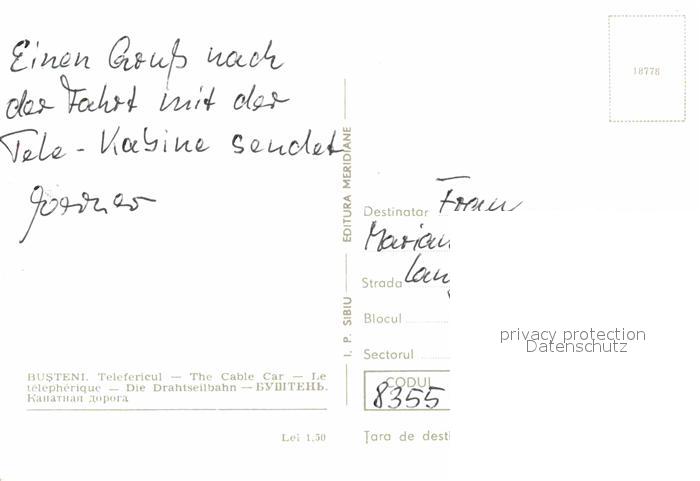 Einen Gruß nach
der Fahrt mit der
Tele - Kabine sendet
18778
EDITURA MERIDIANE
I. P. SIBIU
Destinatar Frau
Marian
Strada
Blocul
Sectorul
CODUL
8355
Țara de desti
privacy protection
Datenschutz
BUȘTENI. Telefericul — The Cable Car — Le
téléphérique — Die Drahtseilbahn — БУШТЕНЬ.
Канатная дорога
Lei 1,50